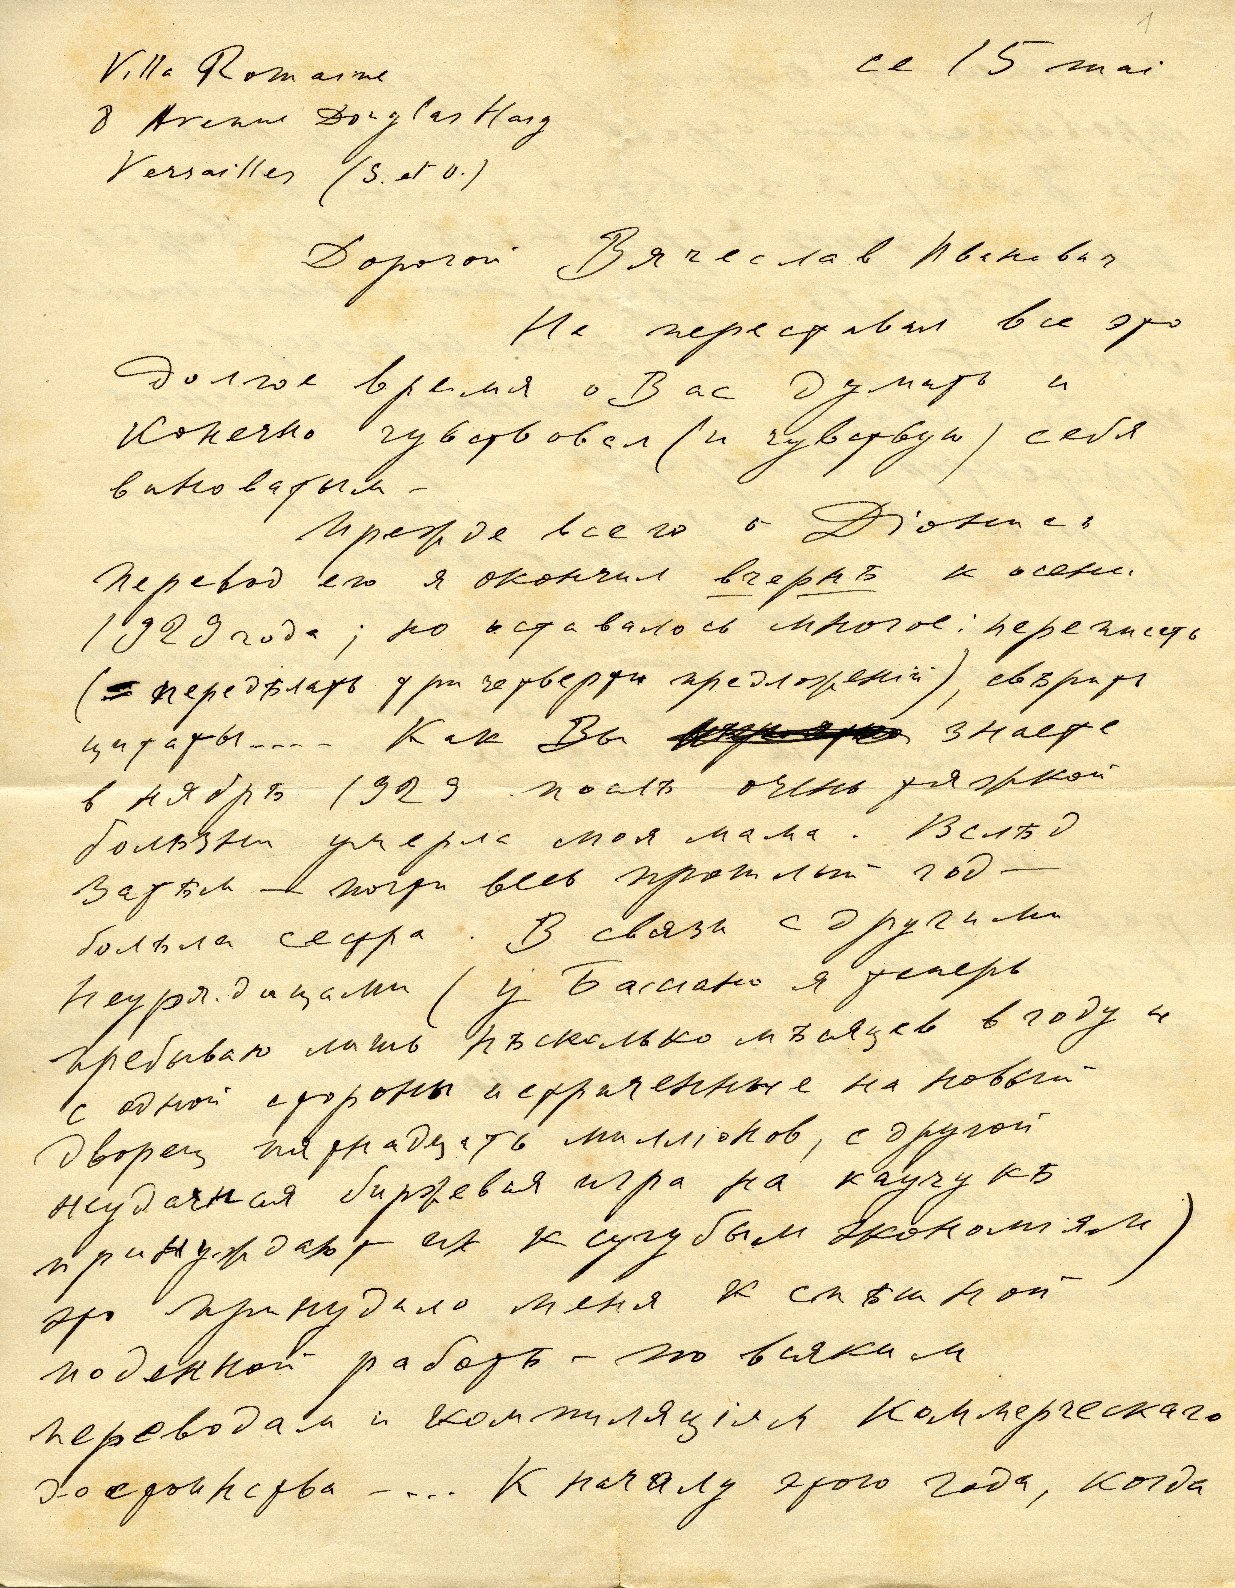 1
Villa Romaine
8 Avenue Douglas Haig
Versailles (S. et O.)
ce 15 mai
Дорогой Вячеслав Иванович
Не переставал все это
долгое время о Вас думать и
конечно чувствовал (и чувствую) себя
виноватым –
Прежде всего о Дiонисѣ
перевод его я окончил вчернѣ к осени
1929 года; но оставалось многое: переписать
(= передѣлать три четверти предложенiй), свѣрить
цитаты.... Как Вы знаете
в ноябрѣ 1929 послѣ очень тяжкой
болѣзни умерла моя мама. Вслѣд
затѣм – почти весь прошлый год –
болѣла сестра. В связи с другими
неурядицами (у Бассiано я теперь
пребываю лишь нѣсколько мѣсяцев в году и
с одной стороны истраченные на новый
дворец пятнадцать миллiонов, с другой
неудачная биржевая игра на каучукѣ
принуждают их к сугубым экономiям)
это принудило меня к спѣшной
поденной работѣ – по всяким
переводам и компиляцiям коммерческаго
достоинства – ... К началу этого года, когда